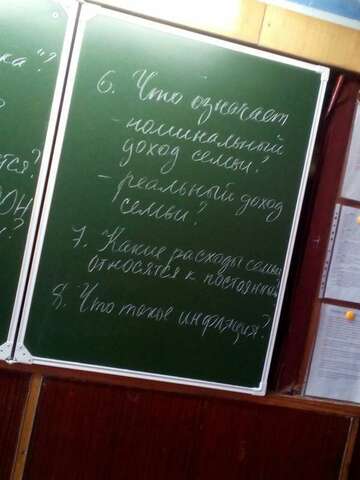 ка"?
ется?
ООН
?
6. Что означает
- номинальный
доход семьи?
- реальный доход
семьи?
7. Какие расходы семьи
относятся к постоянным
8. Что такое инфляция?